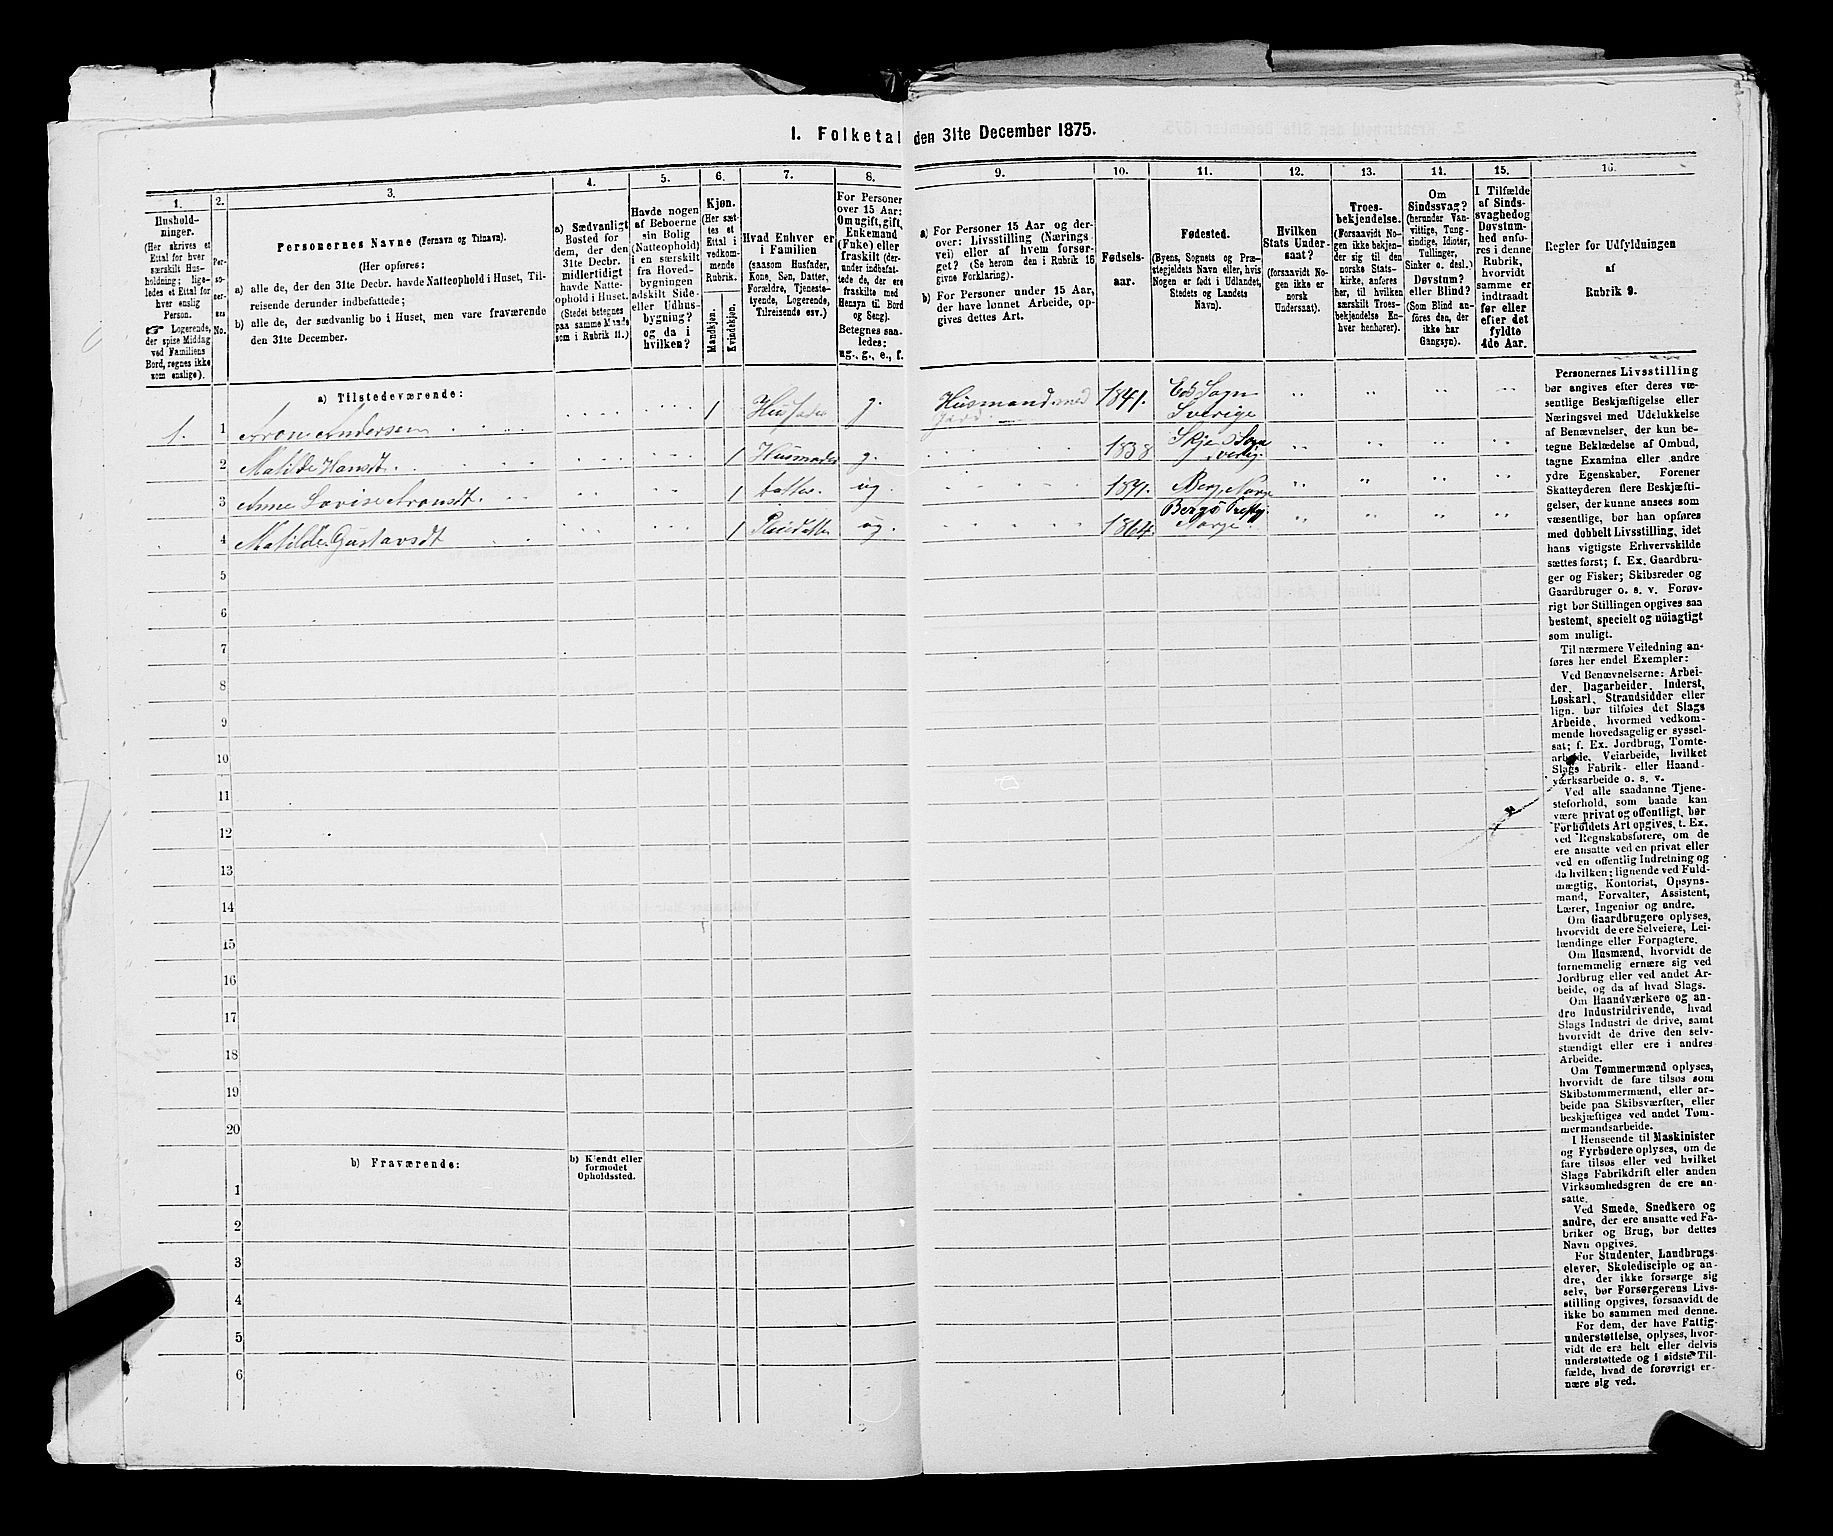 1. Folketal den 31te December 1875.
1.
Hushold-
ninger.
(Her skrives et
Ettal for hver
særskilt Hus-
holdning; lige-
ledes et Ettal for
hver enslig
Person.
☞ Logerende,
der spise Middag
ved Familiens
Bord, regnes ikke
som enslige).
2.
Per-
so-
ner-
nes
No.
3.
Personernes Navne (Fornavn og Tilnavn).
(Her opføres:
a) alle de, der den 31te Decbr. havde Natteophold i Huset, Til-
reisende derunder indbefattede;
b) alle de, der sædvanlig bo i Huset, men vare fraværende
den 31te December.
4.
a) Sædvanligt
Bosted for
dem, der den
31te Decbr.
midlertidigt
havde Natte-
ophold i Huset.
(Stedet betegnes
paa samme Maade
som i Rubrik 11.)
5.
Havde nogen
af Beboerne
sin Bolig
(Natteophold)
i en særskilt
fra Hoved-
bygningen
adskilt Side-
eller Udhus-
bygning?
og da i
hvilken?
6.
Kjøn.
(Her sæt-
tes et
Ettal i
vedkom-
mende
Rubrik.
Mandkjøn.
Kvindekjøn.
7.
Hvad Enhver er
i Familien
(saasom Husfader,
Kone, Søn, Datter,
Forældre, Tjeneste-
tyende, Logerende,
Tilreisende osv.)
8.
For Personer
over 15 Aar:
Om ugift, gift,
Enkemand
(Enke) eller
fraskilt (der-
under indbefat-
tede de, der ere
fraskilte med
Hensyn til Bord
og Seng).
Betegnes saa-
ledes:
ug., g., e., f.
9.
a) For Personer 15 Aar og der-
over: Livsstilling (Nærings
vei) eller af hvem forsør-
get? (Se herom den i Rubrik 16
givne Forklaring).
b) For Personer under 15 Aar,
der have lønnet Arbeide, op-
gives dettes Art.
10.
Fødsels-
aar.
11.
Fødested.
(Byens, Sognets og Præ-
stegjeldets Navn eller, hvis
Nogen er født i Udlandet,
Stedets og Landets
Navn).
12.
Hvilken
Stats Under-
saat?
(forsaavidt No-
gen ikke er
norsk
Undersaat).
13.
Troes-
bekjendelse.
(Forsaavidt No-
gen ikke bekjen-
der sig til den
norske Stats-
kirke, anføres
her, til hvilket
særskilt Troes-
bekjendelse En-
hver henhører).
14.
Om
Sindssvag?
(herunder Van-
vittige, Tung-
sindige, Idioter,
Tullinger,
Sinker o. desl.)
Døvstum?
eller Blind?
(Som Blind an-
føres den, der
ikke har
Gangsyn).
15.
I Tilfælde
af Sinds-
svaghed og
Døvstum-
hed anfø-
res i denne
Rubrik,
hvorvidt
samme er
indtraadt
før eller
efter det
fyldte
4de Aar.
16.
Regler for Udfyldningen
af
Rubrik 9.
a) Tilstedeværende:
1. 1 Aron Andersen 1 Husfader g. Husmand med Jord 1841. Ed Sogn Sverige
2 Matilde Hansdt. 1 Husmoder g. 1838 Skje Sogn
3 Anne Lovise Aronsdt. 1 Datter. ug. 1871. Berg Norge
4 Matilde Gustavsdt 1 Pleiedatter ug. 1864. Bergs Prestgj. Norge.
5
6
7
8
9
10
11
12
13
14
15
16
17
18
19
20
b) Fraværende:
b) Kjendt eller
formodet
Opholdssted.
1
2
3
4
5
6
Personernes Livsstilling
bør angives efter deres væ-
sentlige Beskjæftigelse eller
Næringsvei med Udelukkelse
af Benævnelser, der kun be-
tegne Beklædelse af Ombud,
tagne Examina eller andre
ydre Egenskaber. Forener
Skatteyderen flere Beskjæfti-
gelser, der kunne ansees som
væsentlige, bør han opføres
med dobbelt Livsstilling, idet
hans vigtigste Erhvervskilde
sættes først; f. Ex. Gaardbru-
ger og Fisker; Skibsreder og
Gaardbruger o. s. v. Forøv-
rigt bør Stillingen opgives saa
bestemt, specielt og nöiagtigt
som muligt.
Til nærmere Veiledning an-
føres her endel Exempler:
Ved Benævnelserne: Arbei-
der, Dagarbeider, Inderst,
Løskarl, Strandsidder eller
lign. bør tilføies det Slags
Arbeide, hvormed vedkom-
mende hovedsagelig er syssel-
sat; f. Ex. Jordbrug, Tomte-
arbeide, Veiarbeide, hvilket
Slags Fabrik- eller Haand-
værksarbeide o. s. v.
Ved alle saadanne Tjene-
steforhold, som baade kan
være privat og offentligt, bør
Forholdets Art opgives, t. Ex.
ved Regnskabsførere, om de
ere ansatte ved en privat eller
ved en offentlig Indretning og
da hvilken; lignende ved Fuld-
mægtig, Kontorist, Opsyns-
mand, Forvalter, Assistent,
Lærer, Ingeniør og andre.
Om Gaardbrugere oplyses,
hvorvidt de ere Selveiere, Lei-
lændinge eller Forpagtere.
Om Husmænd, hvorvidt de
fornemmelig ernære sig ved
Jordbrug eller ved andet Ar-
beide, og da af hvad Slags.
Om Haandværkere og an-
dre Industridrivende, hvad
Slags Industri de drive, samt
hvorvidt de drive den selv-
stændigt eller ere i andres
Arbeide.
Om Tømmermænd oplyses,
hvorvidt de fare tilsøs som
Skibstømmermænd, eller ar-
beide paa Skibsværfter, eller
beskjæftiges ved andet Tøm-
mermandsarbeide.
I Henseende til Maskinister
og Fyrbødere oplyses, om de
fare tilsøs eller ved hvilket
Slags Fabrikdrift eller anden
Virksomhedsgren de ere an-
satte.
Ved Smede, Snedkere og
andre, der ere ansatte ved Fa-
briker og Brug, bør dettes
Navn opgives.
For Studenter, Landbrugs-
elever, Skoledisciple og an-
dre, der ikke forsørge sig
selv, bør Forsørgerens Livs-
stilling opgives, forsaavidt de
ikke bo sammen med denne.
For dem, der have Fattig-
understøttelse, oplyses, hvor-
vidt de ere helt eller delvis
understøttede og i sidste Til-
fælde, hvad de forøvrigt er-
nære sig ved.